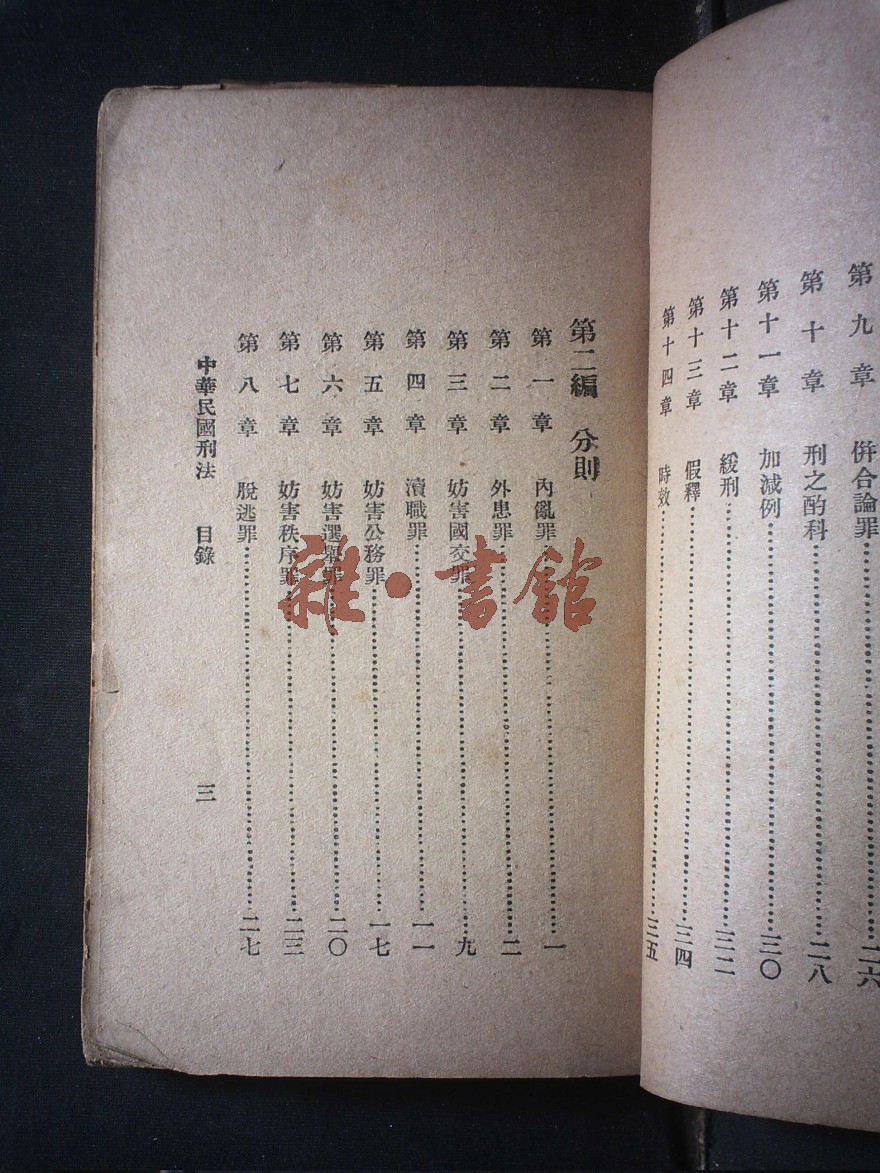 第九章 倂合論罪 二六
第十章 刑之酌科 二八
第十一章 加減例 三〇
第十二章 緩刑 三二
第十三章 假釋 三四
第十四章 時效 三五
第二編 分則
第一章 內亂罪 一
第二章 外患罪 二
第三章 妨害國交罪 九
第四章 瀆職罪 一一
第五章 妨害公務罪 一七
第六章 妨害選舉罪 二〇
第七章 妨害秩序罪 二三
第八章 脫逃罪 二七
中華民國刑法 目錄 三
雜·書館